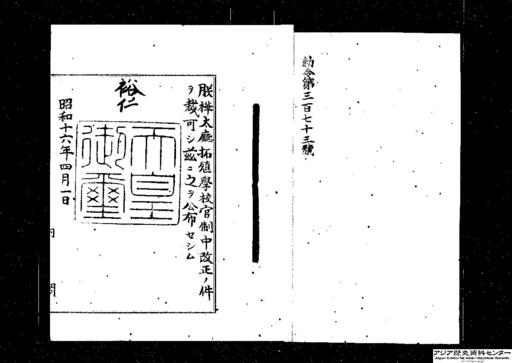 勅令第三百七十三號
朕樺太廳拓殖學校官制中改正ノ件
ヲ裁可シ茲ニ之ヲ公布セシム
裕仁
天皇
御璽
昭和十六年四月一日
内閣
アジア歴史資料センター
Japan Center for Asian Historical Records